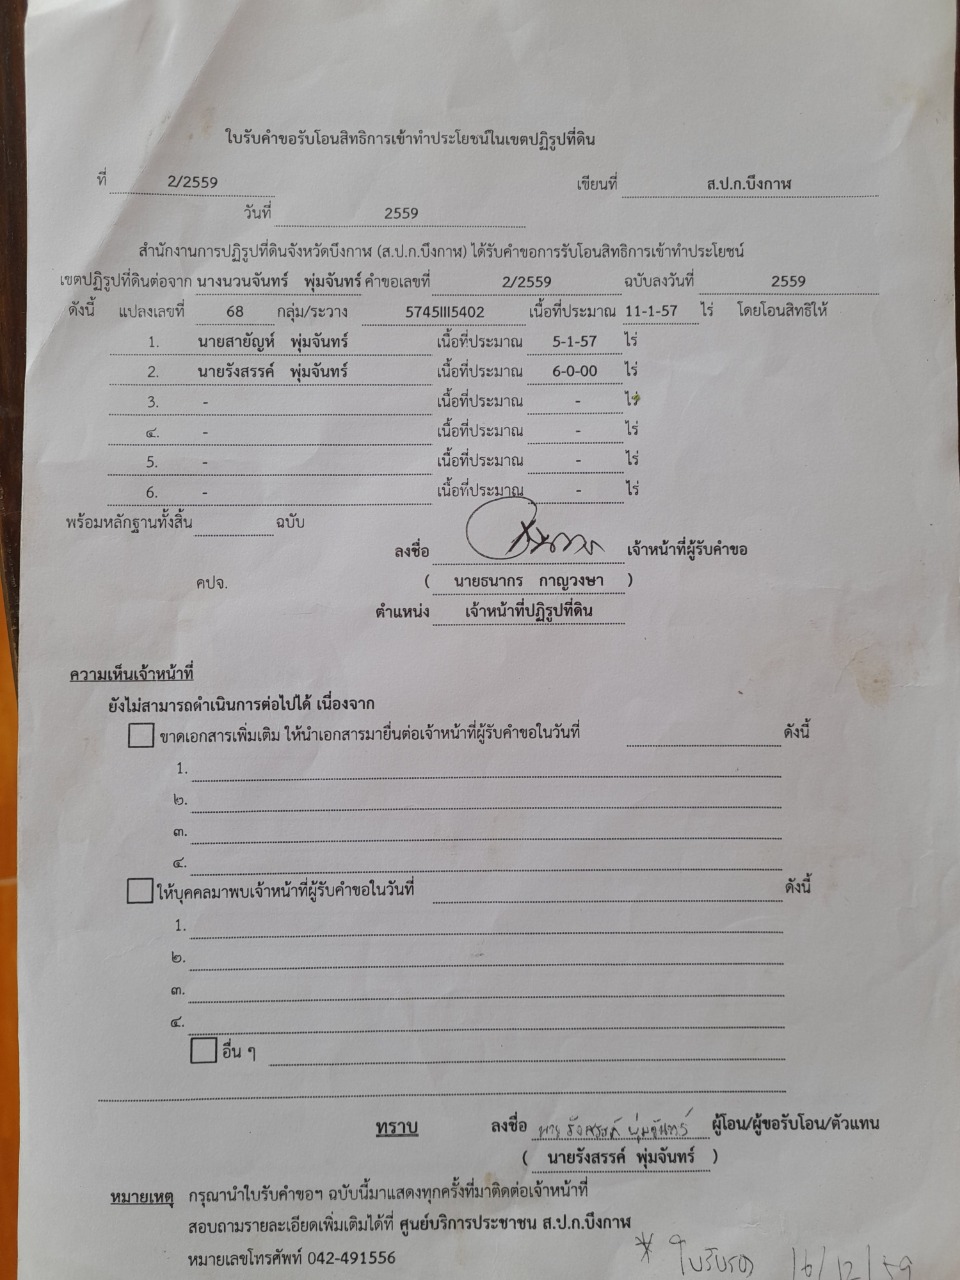 ใบรับคำขอรับโอนสิทธิการเข้าทำประโยชน์ในเขตปฏิรูปที่ดิน
ที่ 2/2559 เขียนที่ ส.ป.ก.บึงกาฬ
วันที่ 2559
สำนักงานการปฏิรูปที่ดินจังหวัดบึงกาฬ (ส.ป.ก.บึงกาฬ) ได้รับคำขอการรับโอนสิทธิการเข้าทำประโยชน์
เขตปฏิรูปที่ดินต่อจาก นางนวนจันทร์ พุ่มจันทร์ คำขอเลขที่ 2/2559 ฉบับลงวันที่ 2559
ดังนี้ แปลงเลขที่ 68 กลุ่ม/ระวาง 5745III5402 เนื้อที่ประมาณ 11-1-57 ไร่ โดยโอนสิทธิให้
1. นายสายัญห์ พุ่มจันทร์ เนื้อที่ประมาณ 5-1-57 ไร่
2. นายรังสรรค์ พุ่มจันทร์ เนื้อที่ประมาณ 6-0-00 ไร่
3. - เนื้อที่ประมาณ - ไร่
๔. - เนื้อที่ประมาณ - ไร่
5. - เนื้อที่ประมาณ - ไร่
6. - เนื้อที่ประมาณ - ไร่
พร้อมหลักฐานทั้งสิ้น ฉบับ
ลงชื่อ เจ้าหน้าที่ผู้รับคำขอ
คปจ. ( นายธนากร กาญวงษา )
ตำแหน่ง เจ้าหน้าที่ปฏิรูปที่ดิน
ความเห็นเจ้าหน้าที่
ยังไม่สามารถดำเนินการต่อไปได้ เนื่องจาก
ขาดเอกสารเพิ่มเติม ให้นำเอกสารมายื่นต่อเจ้าหน้าที่ผู้รับคำขอในวันที่ ดังนี้
1.
๒.
๓.
๔.
ให้บุคคลมาพบเจ้าหน้าที่ผู้รับคำขอในวันที่ ดังนี้
1.
๒.
๓.
๔.
อื่น ๆ
ทราบ ลงชื่อ นาย รังสรรค์ พุ่มจันทร์ ผู้โอน/ผู้ขอรับโอน/ตัวแทน
( นายรังสรรค์ พุ่มจันทร์ )
หมายเหตุ กรุณานำใบรับคำขอฯ ฉบับนี้มาแสดงทุกครั้งที่มาติดต่อเจ้าหน้าที่
สอบถามรายละเอียดเพิ่มเติมได้ที่ ศูนย์บริการประชาชน ส.ป.ก.บึงกาฬ
หมายเลขโทรศัพท์ 042-491556
* 16/12/59